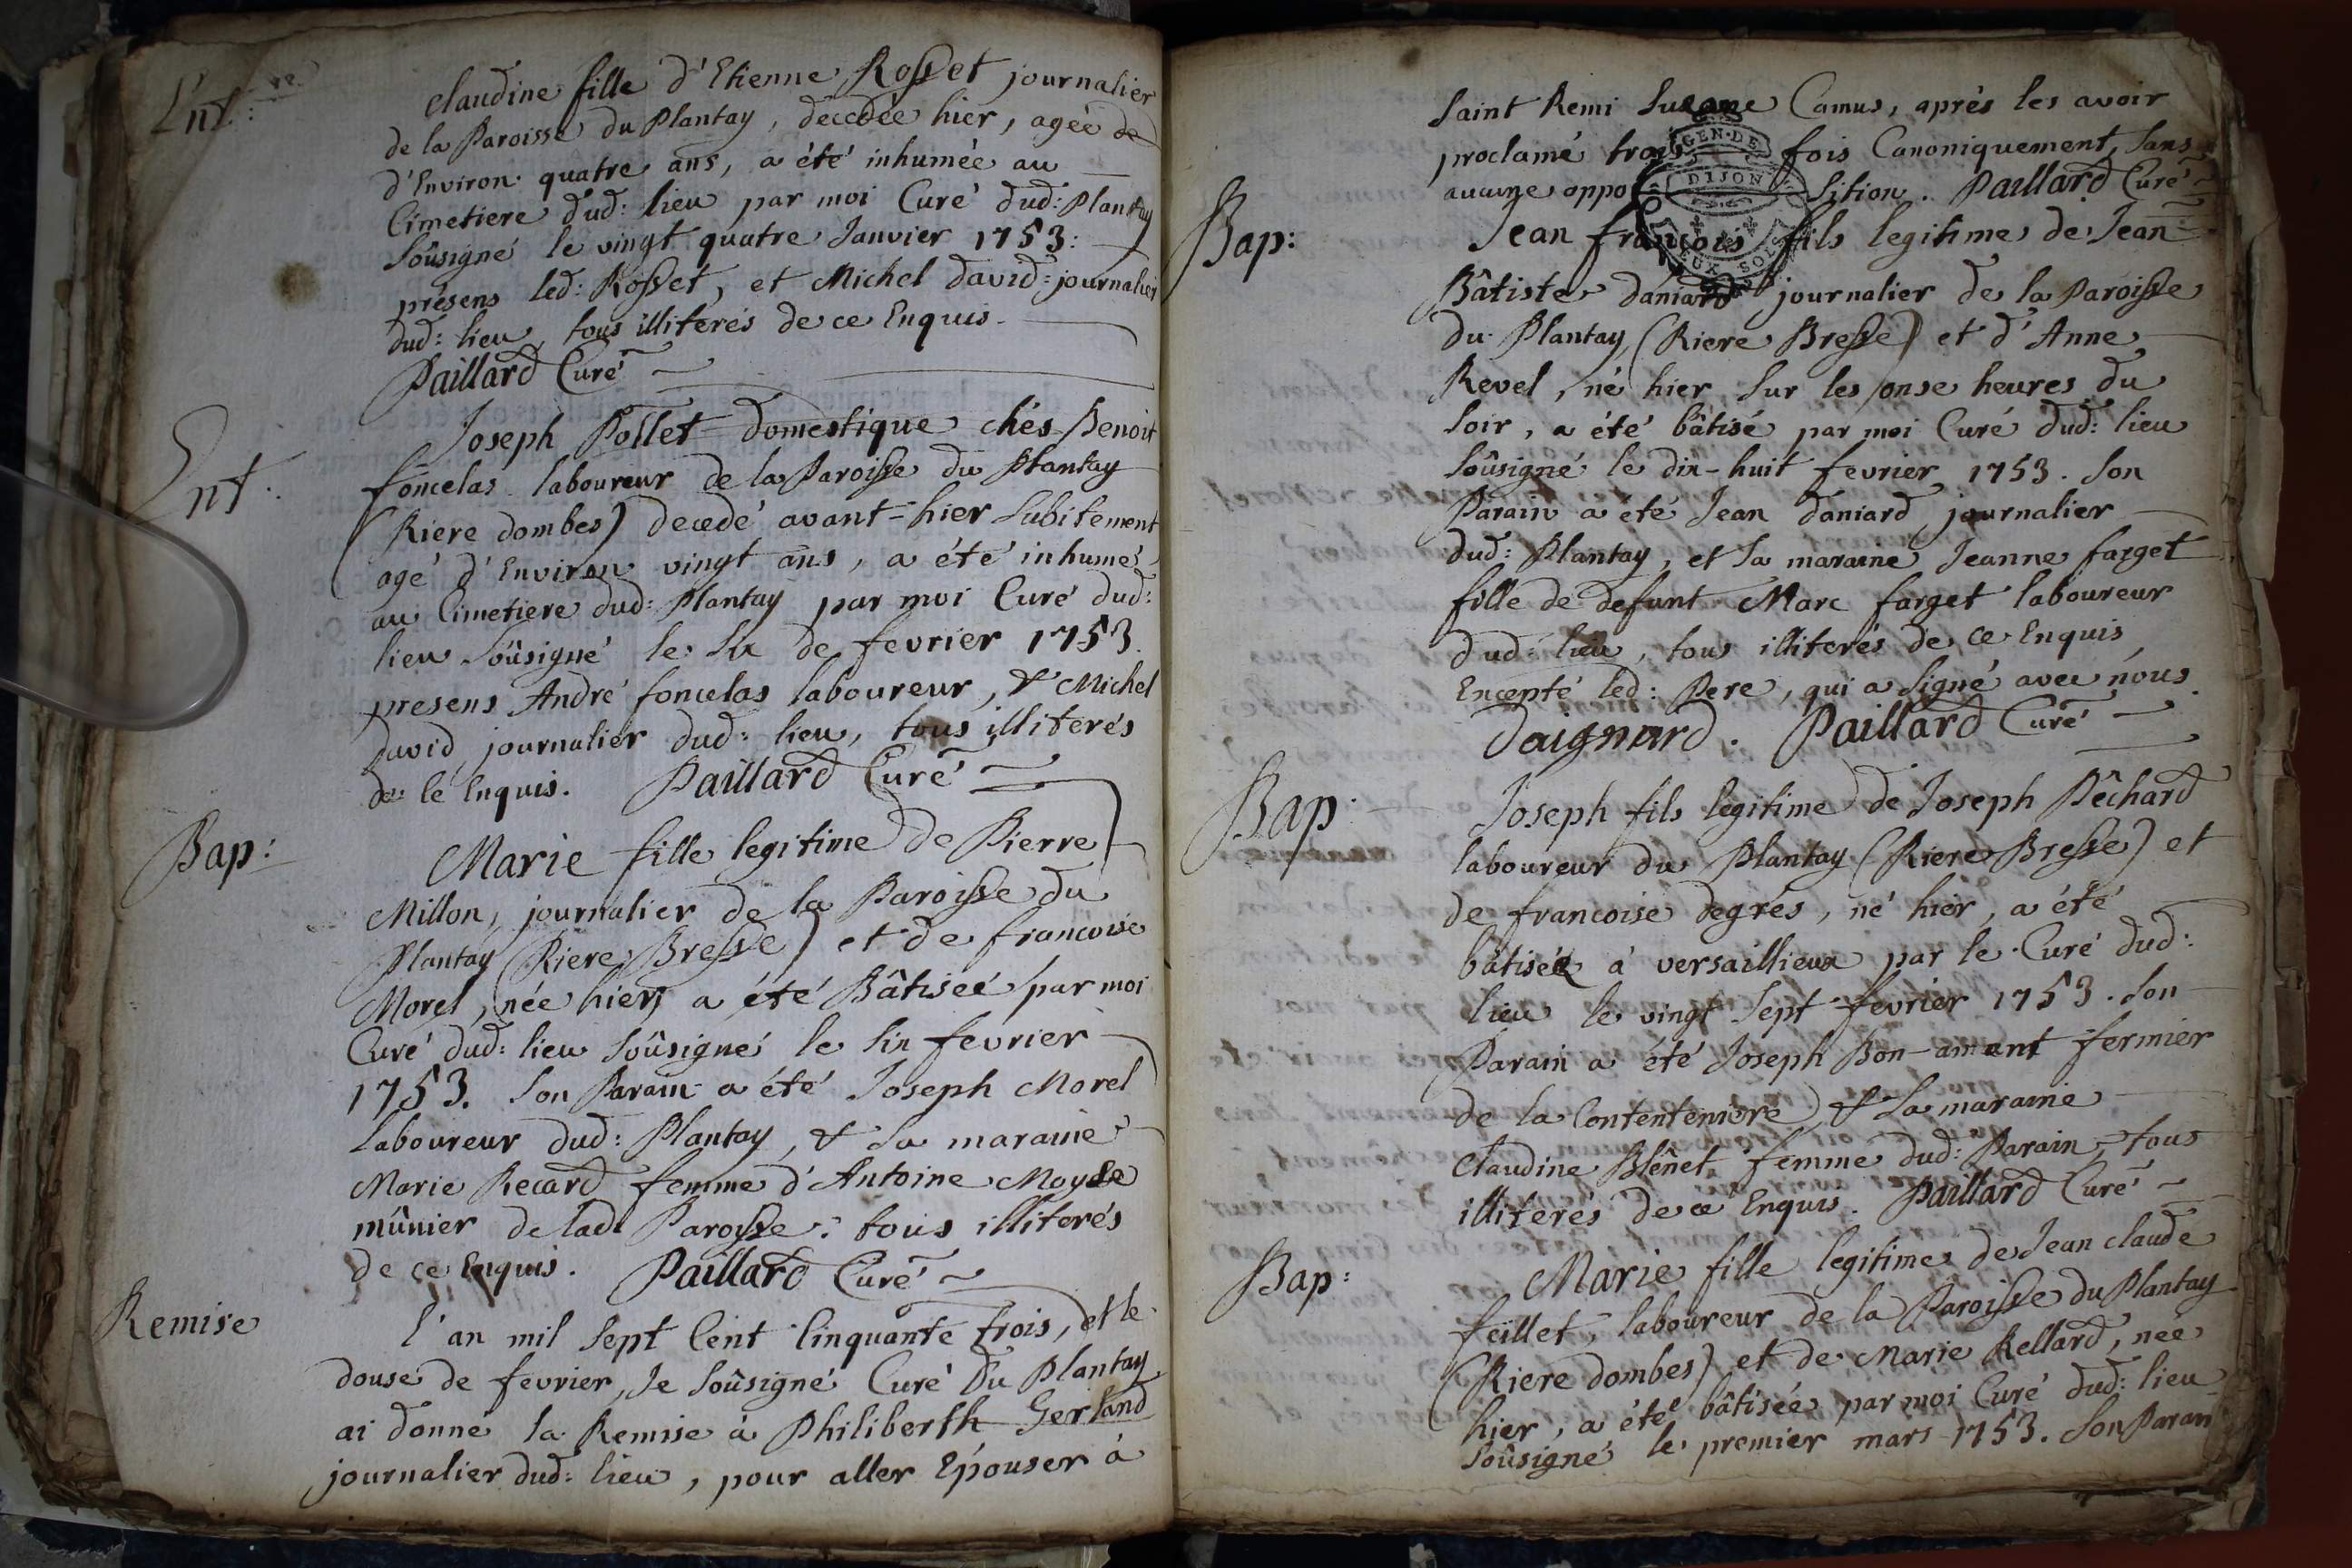 Ent:re
Claudine fille d'Etienne Rosset journalier
de la Paroisse du Plantay, decedée hier, agée de
d'Environ quatre ans, a été inhumée au
Cimetiere dud: lieu par moi Curé dud: Plantay
soûsigné le vingt quatre Janvier 1753:
présens led: Rosset, et Michel david: journalier
dud: lieu, tous illiterés de ce Enquis.
Paillard Curé
Ent:
Joseph Pollet domestique chés Benoit
foncelas laboureur de la Paroisse du Plantay
(Riere dombes) decedé avant-hier subitement
agé d'Environ vingt ans, a été inhumé
au Cimetiere dud: Plantay par moi Curé dud:
lieu soûsigné le six de fevrier 1753.
presens André foncelas laboureur, & Michel
david journalier dud: lieu, tous illiterés
de ce Enquis. Paillard Curé
Bap:
Marie fille legitime de Pierre
Millon, journalier de la Paroisse du
Plantay (Riere Bresse) et de francoise
Morel, née hier, a été Bâtisée par moi
Curé dud: lieu soûsigné le six fevrier
1753. Son Parain a été Joseph Morel
laboureur dud: Plantay, & sa maraine
Marie Recard femme d'Antoine Moyse
mûnier de lad: Paroisse: tous illiterés
de ce Enquis. Paillard Curé
Remise
l'an mil sept Cent Cinquante trois, et le
douse de fevrier, Je soûsigné Curé du Plantay
ai donné la Remise à Philiberth Gerland
journalier dud: lieu, pour aller Epouser à
Saint Remi Susane Camus, aprés les avoir
proclamé trois fois Canoniquement, sans
aucune oppo sition. Paillard Curé
GEN·DE
DIJON
DEUX SOLS
Bap:
Jean francois fils legitime de Jean
Bâtiste daniard journalier de la Paroisse
du Plantay, (Riere Bresse) et d'Anne
Revel, né hier sur les onse heures du
soir, a été bâtisé par moi Curé dud: lieu
soûsigné le dix-huit fevrier 1753. Son
Parain a été Jean daniard journalier
dud: Plantay, et sa maraine Jeanne farget
fille de defunt Marc farget laboureur
dud: lieu, tous illiterés de ce Enquis
Excepté led: Pere, qui a signé avec nous.
Daignard. Paillard Curé
Bap:
Joseph fils legitime de Joseph Pêchard
laboureur du Plantay (Riere Bresse) et
de francoise degrés, né hier, a été
bâtisée à versaillieux par le Curé dud:
lieu le vingt sept fevrier 1753. Son
Parain a été Joseph Bon-amant fermier
de la Contenteniere, & sa maraine
Claudine Blênet femme dud: Parain, tous
illiterés de ce Enquis. Paillard Curé
Bap:
Marie fille legitime de Jean claude
feillet, laboureur de la Paroisse du Plantay
(Riere dombes) et de Marie Rellard, née
hier, a été bâtisée par moi Curé dud: lieu
soûsigné le premier mars 1753. Son Parain